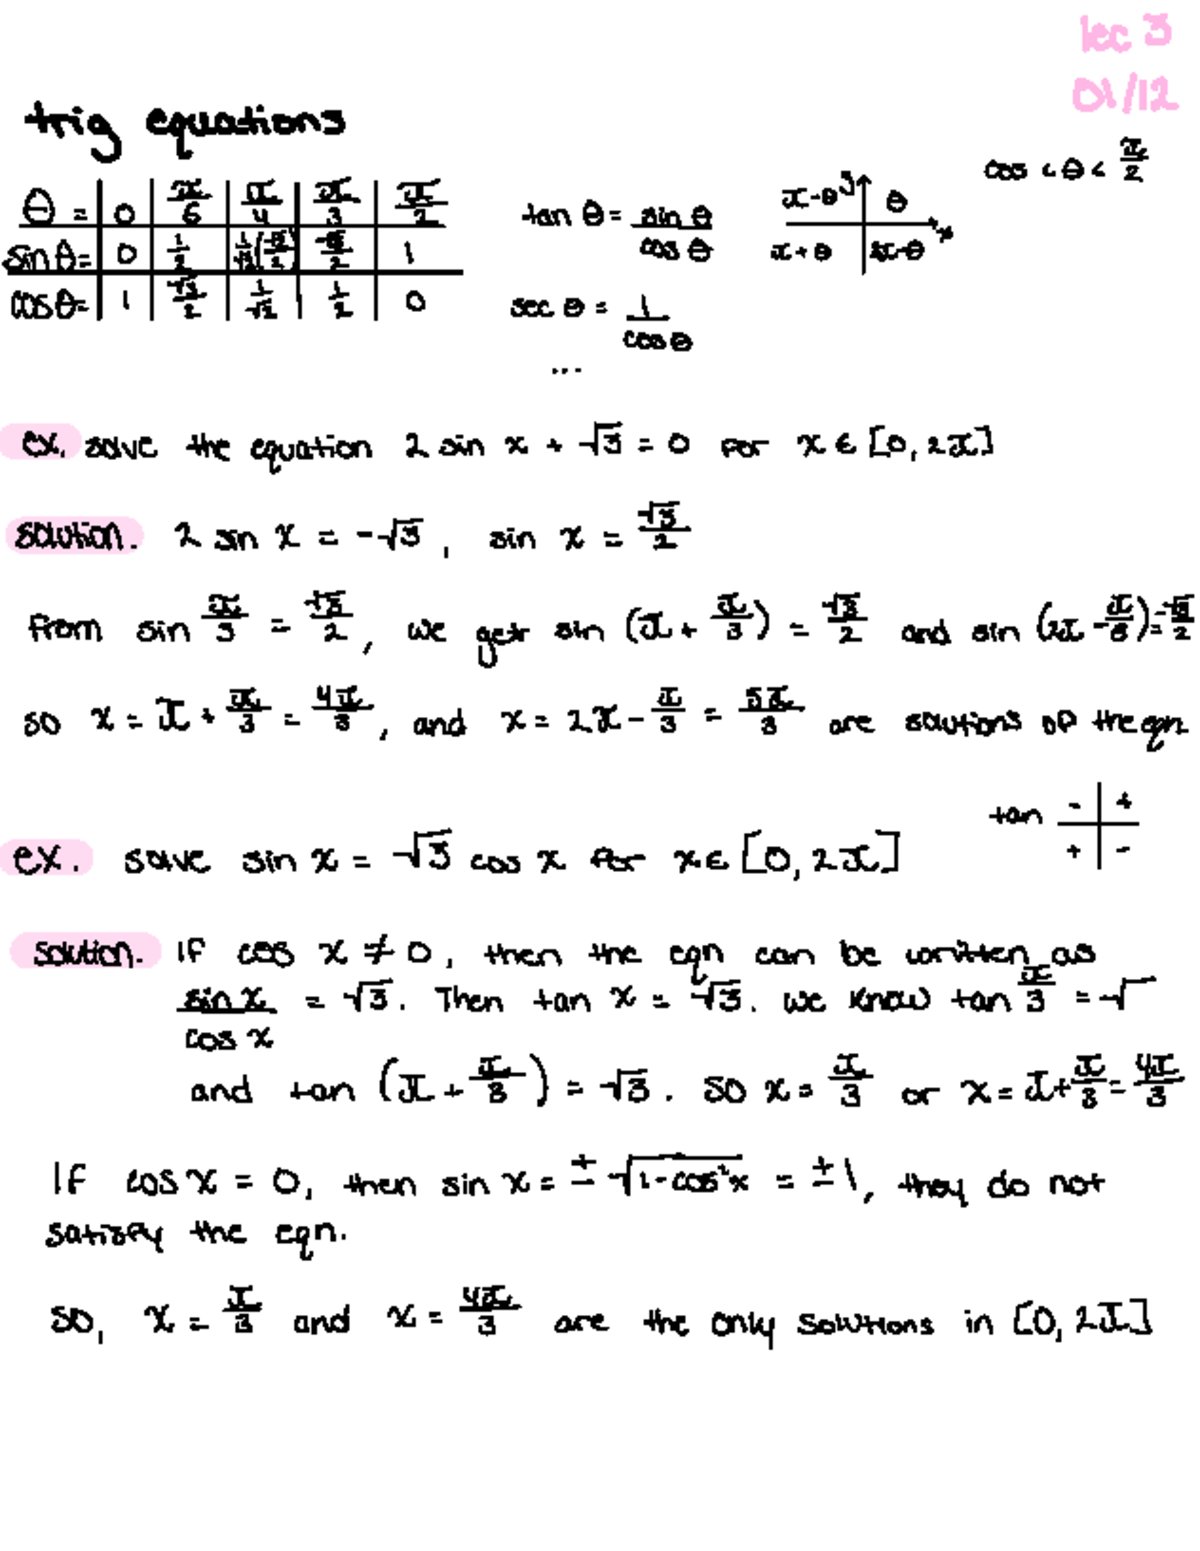 lec 3
01/12
trig equations
cos < θ < π/2
θ = | 0 | π/6 | π/4 | π/3 | π/2
sin θ = | 0 | 1/2 | 1/√2 (√2/2) | √3/2 | 1
cos θ = | 1 | √3/2 | 1/√2 | 1/2 | 0
tan θ = sin θ / cos θ
sec θ = 1 / cos θ
...
π-θ | θ
π+θ | 2π-θ
ex. solve the equation 2 sin x + √3 = 0 for x ∈ [0, 2π]
solution. 2 sin x = -√3, sin x = √3/2
from sin π/3 = √3/2, we get sin (π + π/3) = √3/2 and sin (2π - π/3) = √3/2
so x = π + π/3 = 4π/3, and x = 2π - π/3 = 5π/3 are solutions of the eqn
tan - | +
+ | -
ex. solve sin x = √3 cos x for x ∈ [0, 2π]
solution. If cos x ≠ 0, then the eqn can be written as
sin x / cos x = √3. Then tan x = √3. we know tan π/3 = √
and tan (π + π/3) = √3. so x = π/3 or x = π + π/3 = 4π/3
If cos x = 0, then sin x = ± √1-cos²x = ±1, they do not
satisfy the eqn.
so, x = π/3 and x = 4π/3 are the only solutions in [0, 2π]